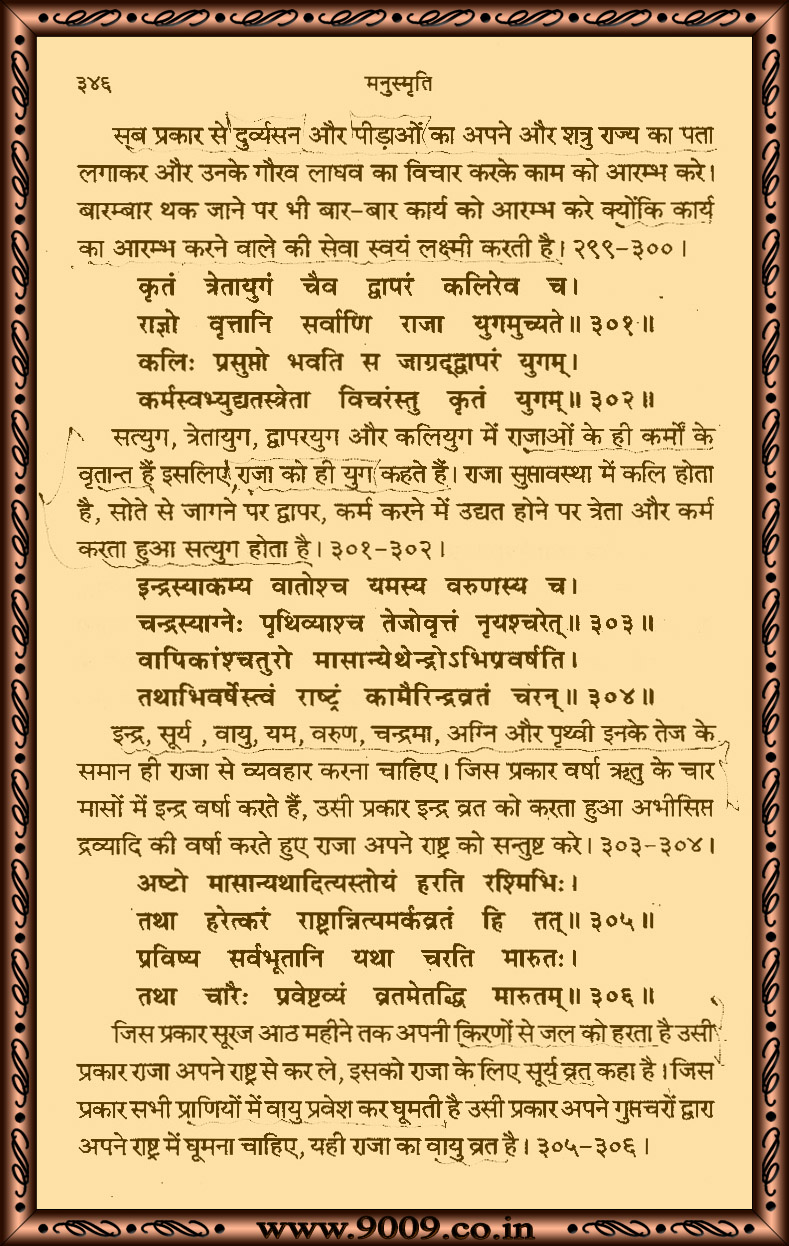 ३४६ मनुस्मृति
सब प्रकार से दुर्व्यसन और पीड़ाओं का अपने और शत्रु राज्य का पता
लगाकर और उनके गौरव लाधव का विचार करके काम को आरम्भ करे।
बारम्बार थक जाने पर भी बार-बार कार्य को आरम्भ करे क्योंकि कार्य
का आरम्भ करने वाले की सेवा स्वयं लक्ष्मी करती है। २९९-३००।
कृतं त्रेतायुगं चैव द्वापरं कलिरेव च।
राज्ञो वृत्तानि सर्वाणि राजा युगमुच्यते॥ ३०१॥
कलिः प्रसुप्तो भवति स जाग्रद्द्वापरं युगम्।
कर्मस्वभ्युद्यतस्त्रेता विचरंस्तु कृतं युगम्॥ ३०२॥
सत्युग, त्रेतायुग, द्वापरयुग और कलियुग में राजाओं के ही कर्मों के
वृतान्त हैं इसलिए राजा को ही युग कहते हैं। राजा सुप्तावस्था में कलि होता
है, सोते से जागने पर द्वापर, कर्म करने में उद्यत होने पर त्रेता और कर्म
करता हुआ सत्युग होता है। ३०१-३०२।
इन्द्रस्याकम्य वातोश्च यमस्य वरुणस्य च।
चन्द्रस्याग्नेः पृथिव्याश्च तेजोवृत्तं नृयश्चरेत्॥ ३०३॥
वापिकांश्चतुरो मासान्येथेन्द्रोऽभिप्रवर्षति।
तथाभिवर्षेस्त्वं राष्ट्रं कामैरिन्द्रव्रतं चरन्॥ ३०४॥
इन्द्र, सूर्य , वायु, यम, वरुण, चन्द्रमा, अग्नि और पृथ्वी इनके तेज के
समान ही राजा से व्यवहार करना चाहिए। जिस प्रकार वर्षा ऋतु के चार
मासों में इन्द्र वर्षा करते हैं, उसी प्रकार इन्द्र व्रत को करता हुआ अभीसिप्त
द्रव्यादि की वर्षा करते हुए राजा अपने राष्ट्र को सन्तुष्ट करे। ३०३-३०४।
अष्टो मासान्यथादित्यस्तोयं हरति रश्मिभिः।
तथा हरेत्करं राष्ट्रान्नित्यमर्कव्रतं हि तत्॥ ३०५॥
प्रविष्य सर्वभूतानि यथा चरति मारुतः।
तथा चारैः प्रवेष्टव्यं व्रतमेतद्धि मारुतम्॥ ३०६॥
जिस प्रकार सूरज आठ महीने तक अपनी किरणों से जल को हरता है उसी
प्रकार राजा अपने राष्ट्र से कर ले, इसको राजा के लिए सूर्य व्रत कहा है। जिस
प्रकार सभी प्राणियों में वायु प्रवेश कर घूमती है उसी प्रकार अपने गुप्तचरों द्वारा
अपने राष्ट्र में घूमना चाहिए, यही राजा का वायु व्रत है। ३०५-३०६।
www.9009.co.in